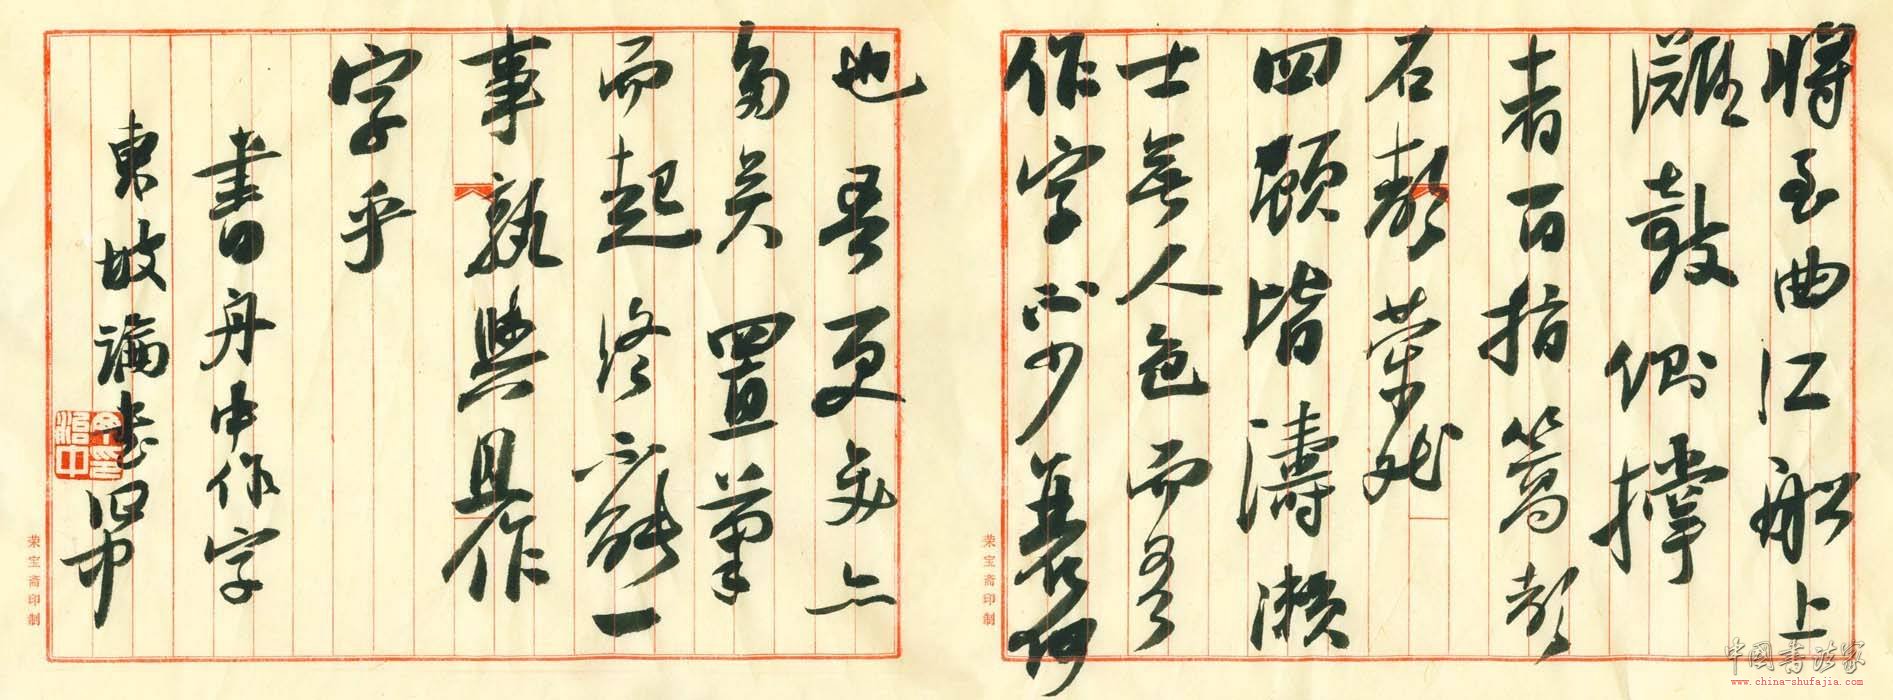 將至曲江船上
灘欹側撐
者百指篙聲
石聲犖然
四顧皆濤瀨
士無人色而吾
作字不少衰何
也吾更變亦
多矣置筆
而起終不能一
事孰與且作
字乎
書舟中作字
東坡論書治中
荣宝斋印制
荣宝斋印制
中国书法家
www.china-shufajia.com